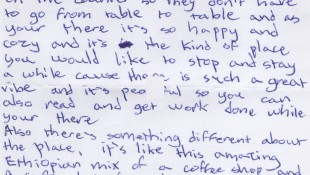 so they don't have
to go from table to table and as
your there it's so happy and
cozy and it's the kind of place
you would like to stop and stay
a while cause there is such a great
vibe and it's so you can
also read and get work done while
your there
Also there's something different about
the place, it's like this amazing
Ethiopian mix of a coffee shop and